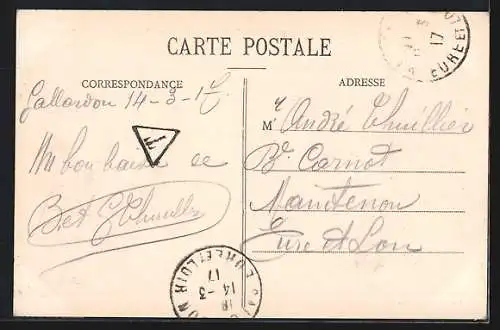 CARTE POSTALE
CORRESPONDANCE
ADRESSE
Gallardon 14-3-17
Un bon baiser de
Thuillier
Mr André Thuillier
Bd Carnot
Maintenon
Eure et Loir
17
EURE
T
EURE-ET-LOIR
18
14-3
17